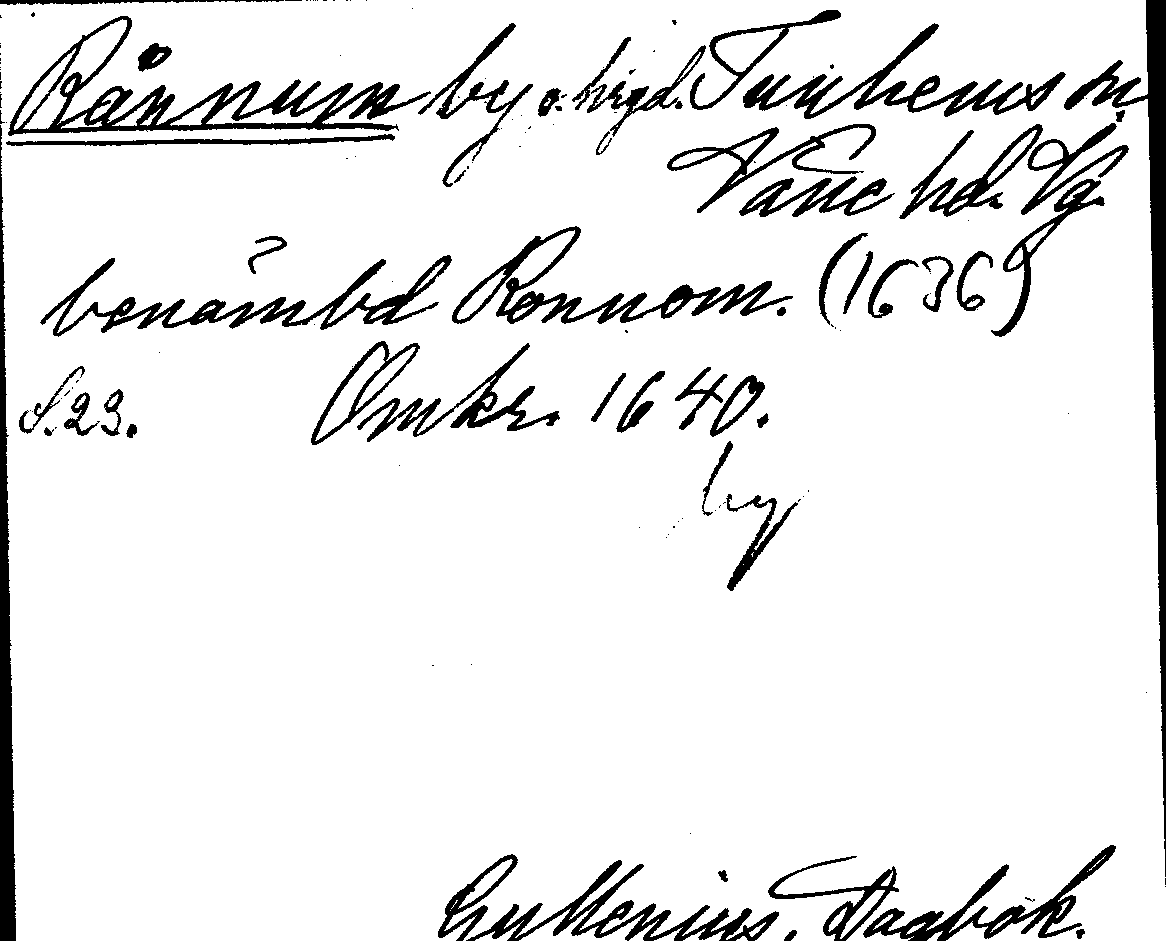 Rånnum by o. hrgd. Tunhems sn,
Väne hd. Vg.
benämbd Ronnom. (1636)
S.23. Omkr. 1640.
by
Gyllenius, Dagbok.